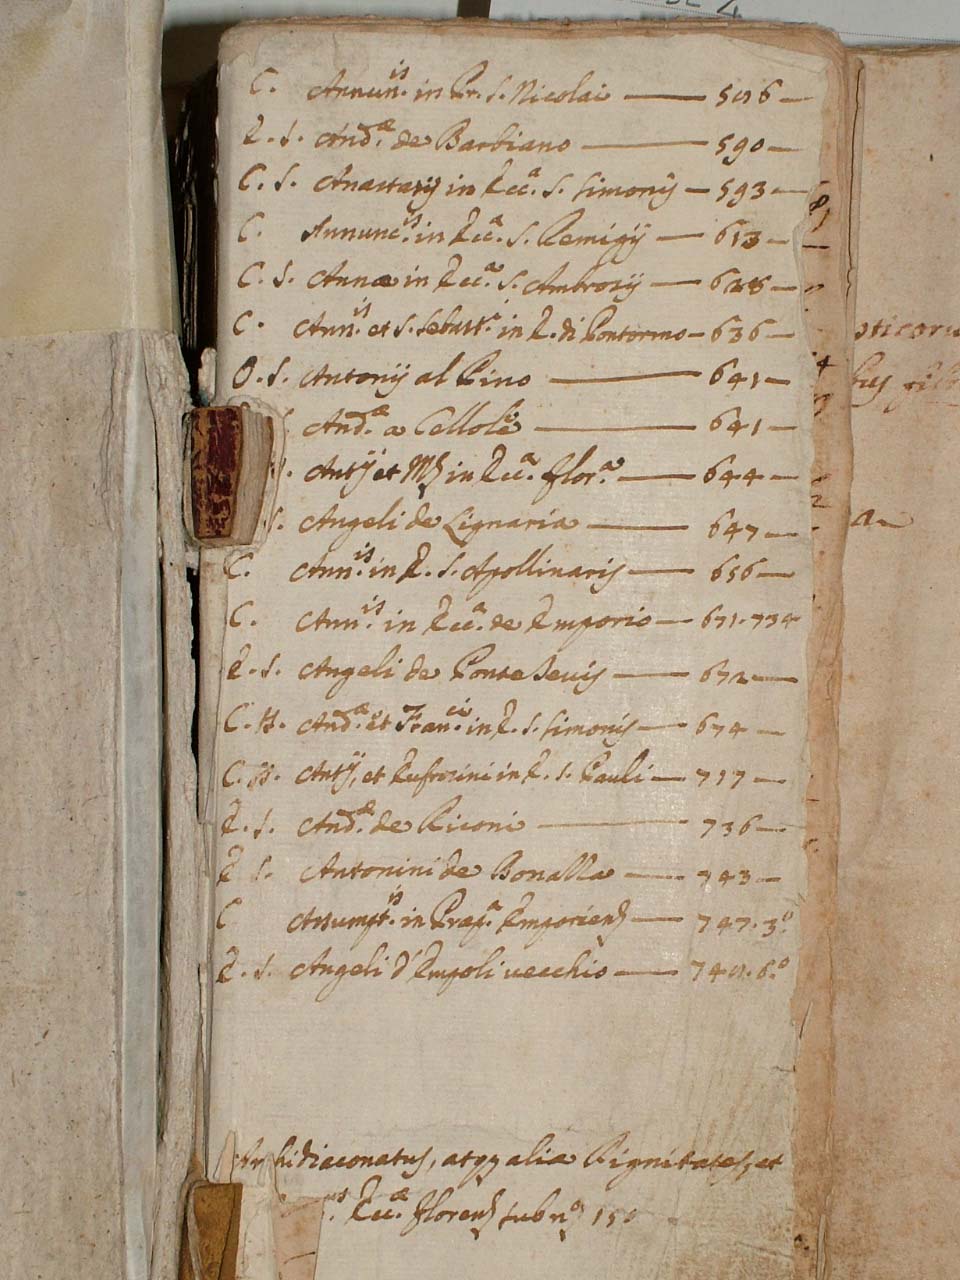 C. Annun.is in Pr. S. Nicolai — 506 —
E. S. And.æ de Barbiano — 590 —
C. S. Anastasij in Ecc.a S. Simonis — 593 —
C. Annunc.is in Ecc.a S. Remigij — 613 —
C. S. Annæ in Ecc.a S. Ambrosij — 628 —
C. Ann.is et S. Sebast.i in E. di Pontormo — 636 —
O. S. Antonij al Pino — 641 —
And.æ a Cellole — 641 —
Antij et in Ecc.a flor.a — 644 —
S. Angeli de Lignaria — 647 —
C. Ann.is in E. S. Apollinaris — 656 —
C. Ann.is in Ecc.a de Emporio — 671.734
E. S. Angeli de Ponte — 672 —
C. H. And.æ et Fran.ci in E. S. Simonis — 674 —
C. H. Antij, et Eufrosini in E. S. Pauli — 717 —
E. S. And.æ de — 736 —
E S. Antonini de Bonalla — 743 —
C Assumpt.is in Prap.a — 747.3.o
E. S. Angeli d'Empoli vecchio — 6.o
hidiaconatus, atqz aliæ Dignitates, et
Ecc.æ sub n.o